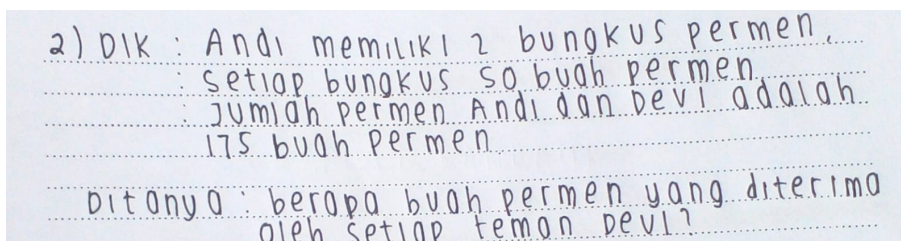 2) DIK : Andi memiliki 2 bungkus permen.
: setiap bungkus 50 buah permen
: Jumlah permen Andi dan Devi adalah
175 buah permen
Ditanya : berapa buah permen yang diterima
oleh setiap teman Devi?